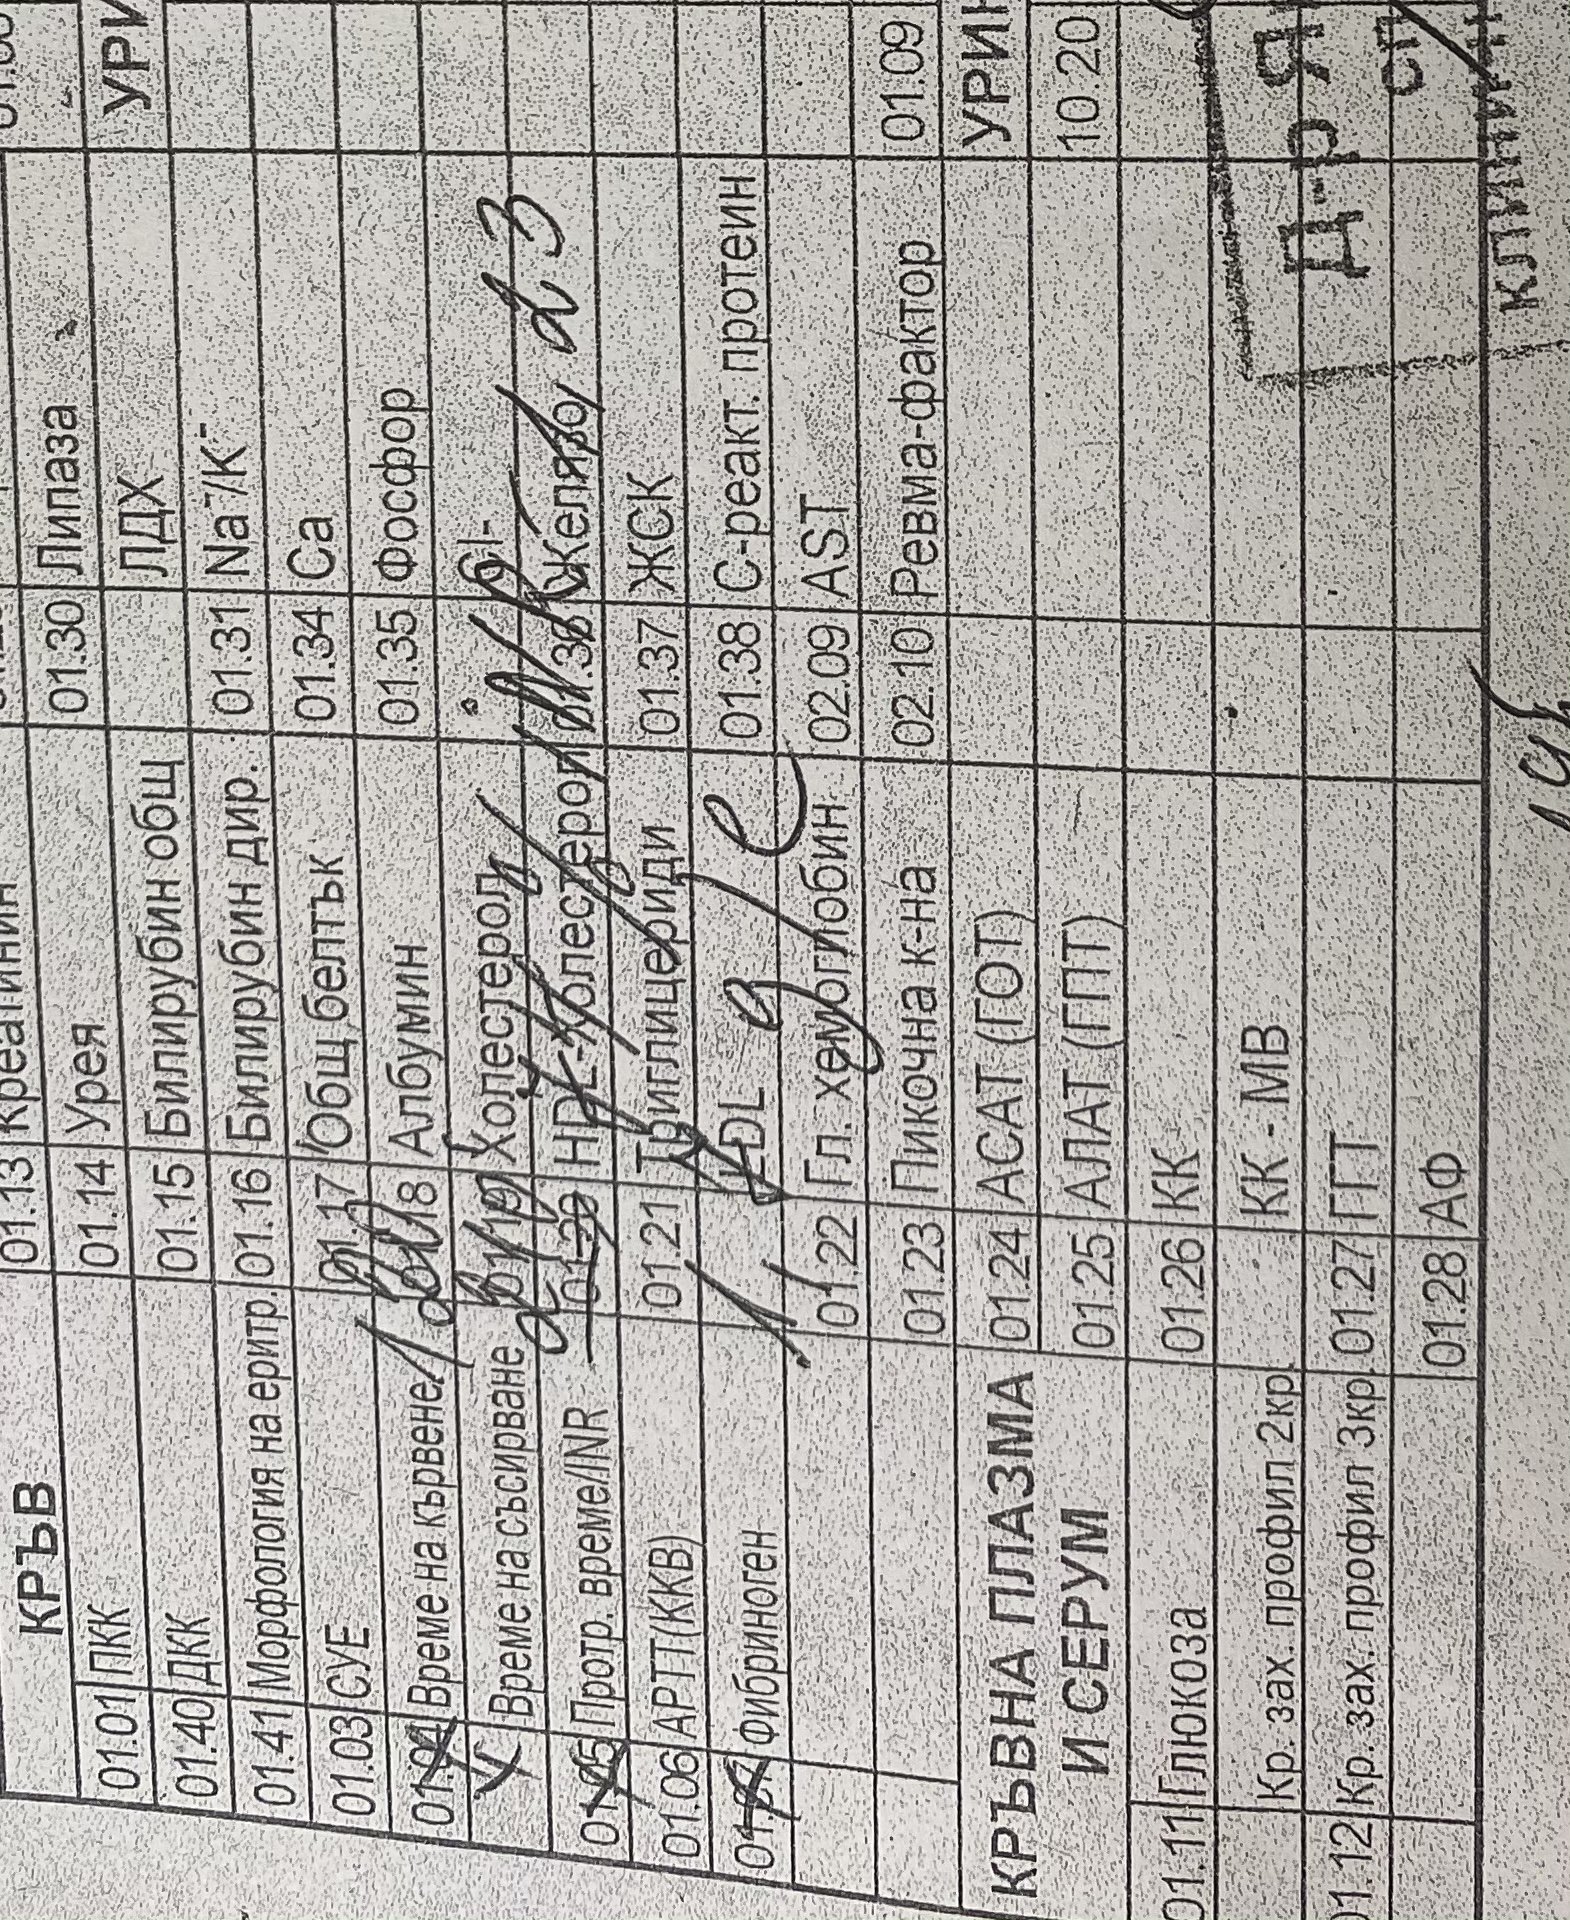 КРЪВ
01.01 ПКК
01.40 ДКК
01.41 Морфология на еритр.
01.03 СУЕ
01.04 Време на кървене
Време на съсирване
01.05 Протр. време/INR
01.06 АРТТ(ККВ)
01.07 Фибриноген
КРЪВНА ПЛАЗМА
И СЕРУМ
01.11 Глюкоза
Кр. зах. профил 2кр.
01.12 Кр. зах. профил 3кр.
01.13 Креатинин
01.14 Урея
01.15 Билирубин общ
01.16 Билирубин дир.
01.17 Общ белтък
01.18 Албумин
01.19 Холестерол
01.20 HDL-Холестерол
01.21 Триглицериди
LDL
01.22 Гл. хемоглобин
01.23 Пикочна к-на
01.24 АСАТ (ГОТ)
01.25 АЛАТ (ГПТ)
01.26 КК
КК - МВ
01.27 ГГТ
01.28 АФ
01.30 Липаза
ЛДХ
01.31 Na⁻/K⁻
01.34 Ca
01.35 Фосфор
Cl-
01.36 Желязо
01.37 ЖСК
01.38 С-реакт. протеин
02.09 AST
02.10 Ревма-фактор
d 3
УРИ
01.09
УРИН
10.20
Д-р Я
сп